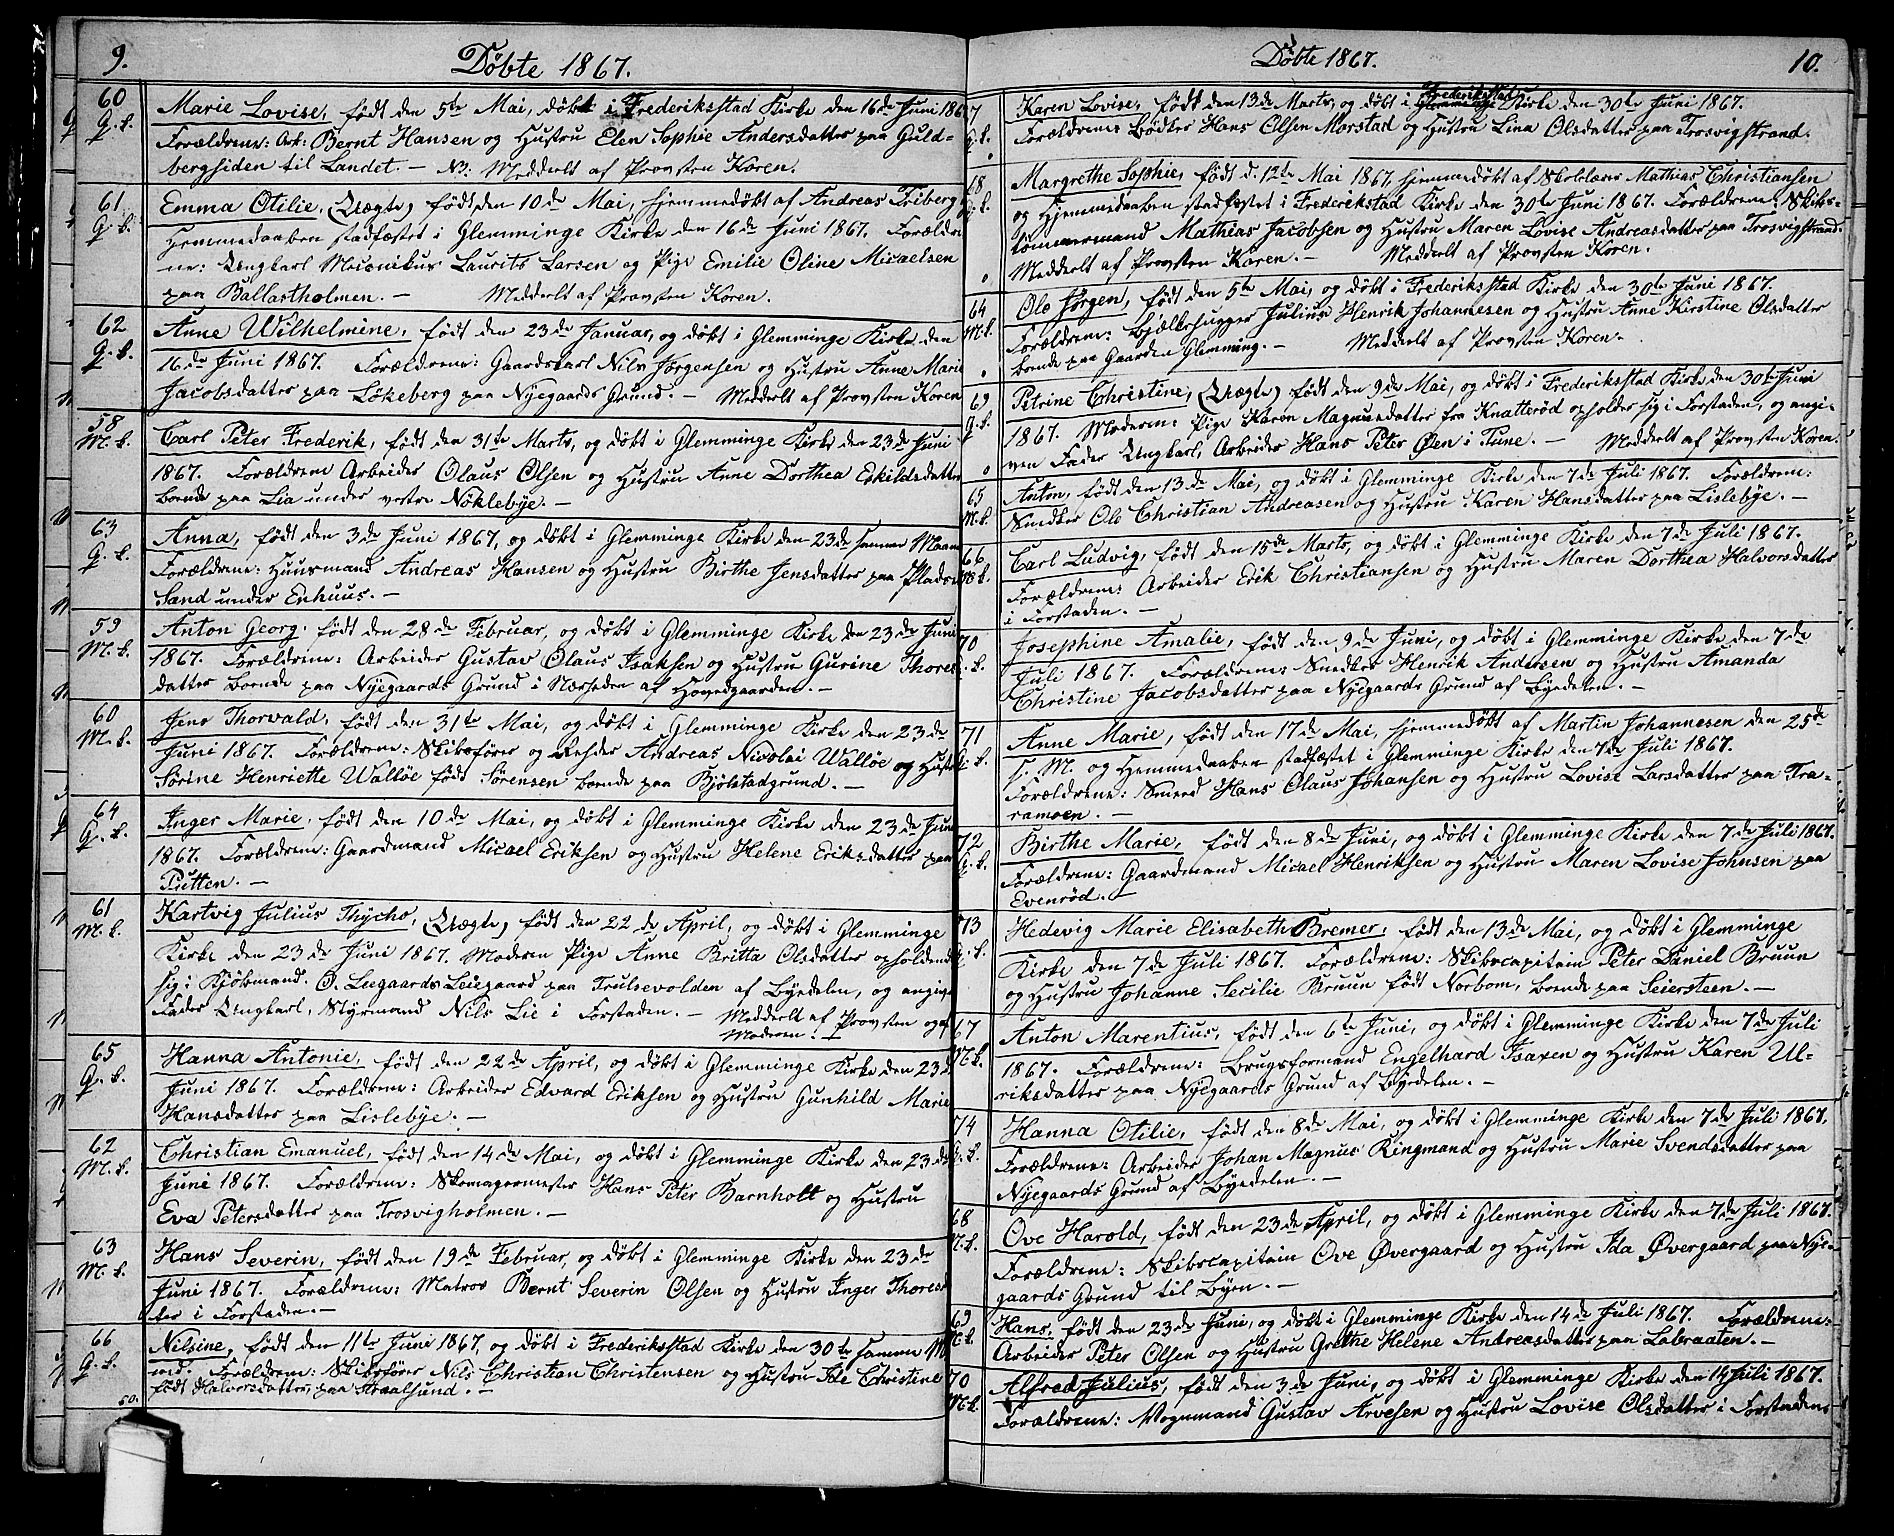 9.
Döbte 1867.
60
Q. k.
Marie Lovise, födt den 5te Mai, döbt i Frederiksstad Kirke den 16de Juni 186
Forældrene: Arb: Bernt Hansen og Hustru Elen Sophie Andersdatter paa Guld-
bergsiden til Landet. – N3: Meddelt af Provsten Koren.
61
Q. k.
Emma Otilie, (Uægte) födt den 10de Mai, hjemmedöbt af Andreas Friberg
Hemmedaaben stadfæstet i Glemminge Kirke den 16de Juni 1867. Foreldre
ne: Ungkarl Musonikus Laurits Larsen og Pige Emilie Oline Micaelsen
paa Ballastholmen. – Meddelt af Provsten Koren.
62
Q. k.
Anne Wilhelmine, födt den 23de Januar, og döbt i Glemminge Kirke den
16de Juni 1867. Forældrene: Gaardskarl Nils Jörgensen og Hustru Anne Marie
Jacobsdatter paa Lökeberg paa Nyegaards Grund. – Meddelt af Provsten Koren
58
M. k.
Carl Peter Frederik, födt den 31te Marts, og döbt i Glemminge Kirke den 23de Juni
1867. Forældrene Arbeider Olaus Olsen og Hustru Anne Dorthea Eskildsdatter
boende paa Lia under vestre Nöklebye. –
63
Q. k.
Anna, födt den 3de Juni 1867, og döbt i Glemminge Kirke den 23de samme Maan
Forældrene: Huusmand Andreas Hansen og Hustru Birthe Jensdatter paa Plads
Sand under Enhuus. –
59
M. k.
Anton Georg. födt den 28de Februar, og döbt i Glemminge Kirke den 23de Juni
1867. Forældrene: Arbeider Gustav Olaus Isaksen og Hustru Gurine Thores
datter boende paa Nyegaards Grund i Nærheden af Hovedgaarden. –
60
M. k.
Jens Thorvald, födt den 31te Mai, og döbt i Glemminge Kirke den 23de
Juni 1867. Forældrene: Skibsförer og Reder Andreas Nicolai Wallöe og Hustr
Sörine Henriette Wallöe födt Sörensen boende paa Bjölstadgrund. –
64
Q. k.
Inger Marie, födt den 10de Mai, og döbt i Glemminge Kirke den 23de Juni
1867. Forældrene: Gaardmand Micael Eriksen og Hustru Helene Eriksdatter paa
Putten. –
61
M. k.
Hartvig Julius Thycho, (Uægte) födt den 22de April, og döbt i Glemminge
Kirke den 23de Juni 1867. Moderen Pige Anne Britta Olsdatter opholdend
sig i Kjöbmand. O. Liegaards Leiegaard paa Trulsevolden af Byedelen, og angiv
Fader Ungkarl, Styrmand Nils Lie i Forstaden. – Meddelt af Provsten og af
Moderen. –
65
Q. k.
Hanna Antonie, födt den 22de April, og döbt i Glemminge Kirke den 23d
Juni 1867. Forældrene: Arbeider Edvard Eriksen og Hustru Gunhild Marie
Hansdatter paa Lislebye. –
62
M. k.
Christian Emanuel, födt den 14de Mai, og döbt i Glemminge Kirke den 23de
Juni 1867. Forældrene: Skomagermester Hans Peter Barnholt og Hustru
Eva Petersdatter paa Trosvigholmen. –
63
M. k.
Hans Severin, födt den 19de Februar, og döbt i Glemminge Kirke den 23de
Juni 1867. Forældrene: Matros Bernt Severin Olsen og Hustru Inger Thoresd
ter i Forstaden. –
66
Q. k.
Nilsine, födt den 11te Juni 1867, og döbt i Frederikstad Kirke den 30te samme M
ned. Forældrene: Skibsförer Nils Christian Christensen og Hustru Christine
födt Halvorsdatter, paa Kraalsund. –
Döbte 1867.
10.
7
Q. k.
Karen Lovise, födt den 13de Marts, og döbt i Frederiksstad Kirke den 30te Juni 1867.
Forældrene: Bödker Hans Olsen Morstad og Hustru Lina Olsdatter paa Trosvigstrand.
68
Q. k.
Margrethe Sophie, födt d. 12te Mai 1867, hjemmedöbt af Skoblærer Mathias Christiansen
og Hjemmedaaben stadfæstet i Frederikstad Kirke den 30te Juni 1867. Forældrene: Skibs-
tömmermand Mathias Jacobsen og Hustru Maren Lovise Andreasdatter paa Trosvigstrand.
Meddelt af Provsten Koren. – Meddelt af Provsten Koren.
64
M. k.
Ole Jörgen, födt den 5te Mai, og döbt i Frederiksstad Kirke den 30te Juni 1867.
Forældrene: Bjælkehugger Julius Henrik Johannesen og Hustru Anne Kirstine Olsdatter
boende paa Gaarden Glemming. – Meddelt af Provsten Koren.
69
Q. k.
Petrine Christine, (Uægte) födt den 9de Mai, og döbt i Frederiksstad Kirke den 30te Juni
1867. Moderen: Pige Karen Magnusdatter fra Knatteröd opholder sig i Forstaden, og angi-
ven Fader Ungkarl, Arbeider Hans Peter Öen i Tune. – Meddelt af Provsten Koren.
65
M. k.
Anton, födt den 13de Mai, og döbt i Glemminge Kirke den 7de Juli 1867. Forældrene:
Snedker Ole Christian Andreasen og Hustru Karen Hansdatter paa Lislebye. –
66
M. k.
Carl Ludvig, födt den 15de Marts, og döbt i Glemminge Kirke den 7de Juli 1867.
Forældrene: Arbeider Erik Christiansen og Hustru Maren Dorthea Halvorsdatter
i Forstaden. –
70
Q. k.
Josephine Amalie, födt den 9de Juni, og döbt i Glemminge Kirke den 7de
Juli 1867. Forældrene: Snedker Henrik Andersen og Hustru Amanda
Christine Jacobsdatter paa Nyegaards Grund af Byedelen. –
71
Q. k.
Anne Marie, födt den 17de Mai, hjemmedöbt af Martin Johannesen den 25de
s. M. og Hemmedaaben stadfæstet i Glemminge Kirke den 7de Juli 1867.
Forældrene: Smeed Hans Olaus Johansen og Hustru Lovise Larsdatter paa Tra-
ramoen. –
72
Q. k.
Birthe Marie, födt den 8de Juni, og döbt i Glemminge Kirke den 7de Juli 1867.
Forældrene: Gaardmand Micael Henriksen og Hustru Maren Lovise Johnsen paa
Evenröd. –
73
Q. k.
Hedevig Marie Elisabeth Bremer, födt den 13de Mai, og döbt i Glemminge
Kirke den 7de Juli 1867. Forældrene: Skibscapitein Peter Daniel Bruun
og Hustru Johanne Secilie Bruun födt Norbom, boende paa Seiersteen. –
67
M. k.
Anton Marentius, födt den 6te Juni, og döbt i Glemminge Kirke den 7de Juli
1867. Forældrene: Brugsformand Engelhard Isaxen og Hustru Karen Ul-
riksdatter paa Nyegaards Grund af Byedelen. –
74
Q. k.
Hanna Otilie, födt den 8de Mai, og döbt i Glemminge Kirke den 7de Juli 1867.
Forældrene: Arbeider Johan Magnus Ringmand og Hustru Marie Svendsdatter paa
Nyegaards Grund af Byedelen. –
68
M. k.
Ove Harold, födt den 23de April, og döbt i Glemminge Kirke den 7de Juli 1867.
Forældrene: Skibscapitein Ove Övergaard og Hustru Ida Övergaard paa Nye-
gaards Grund til Byen. –
69
M. k.
Hans, födt den 23de Juni, og döbt i Glemminge Kirke den 14de Juli 1867. Forældrene:
Arbeider Peter Olsen og Hustru Grethe Helene Andreasdatter paa Labraaten. –
70
M. k.
Alfred Julius, födt den 3de Juni, og döbt i Glemminge Kirke den 14 Juli 1867.
Forældrene: Vognmand Gustav Arvesen og Hustru Lovise Olsdatter i Forstaden